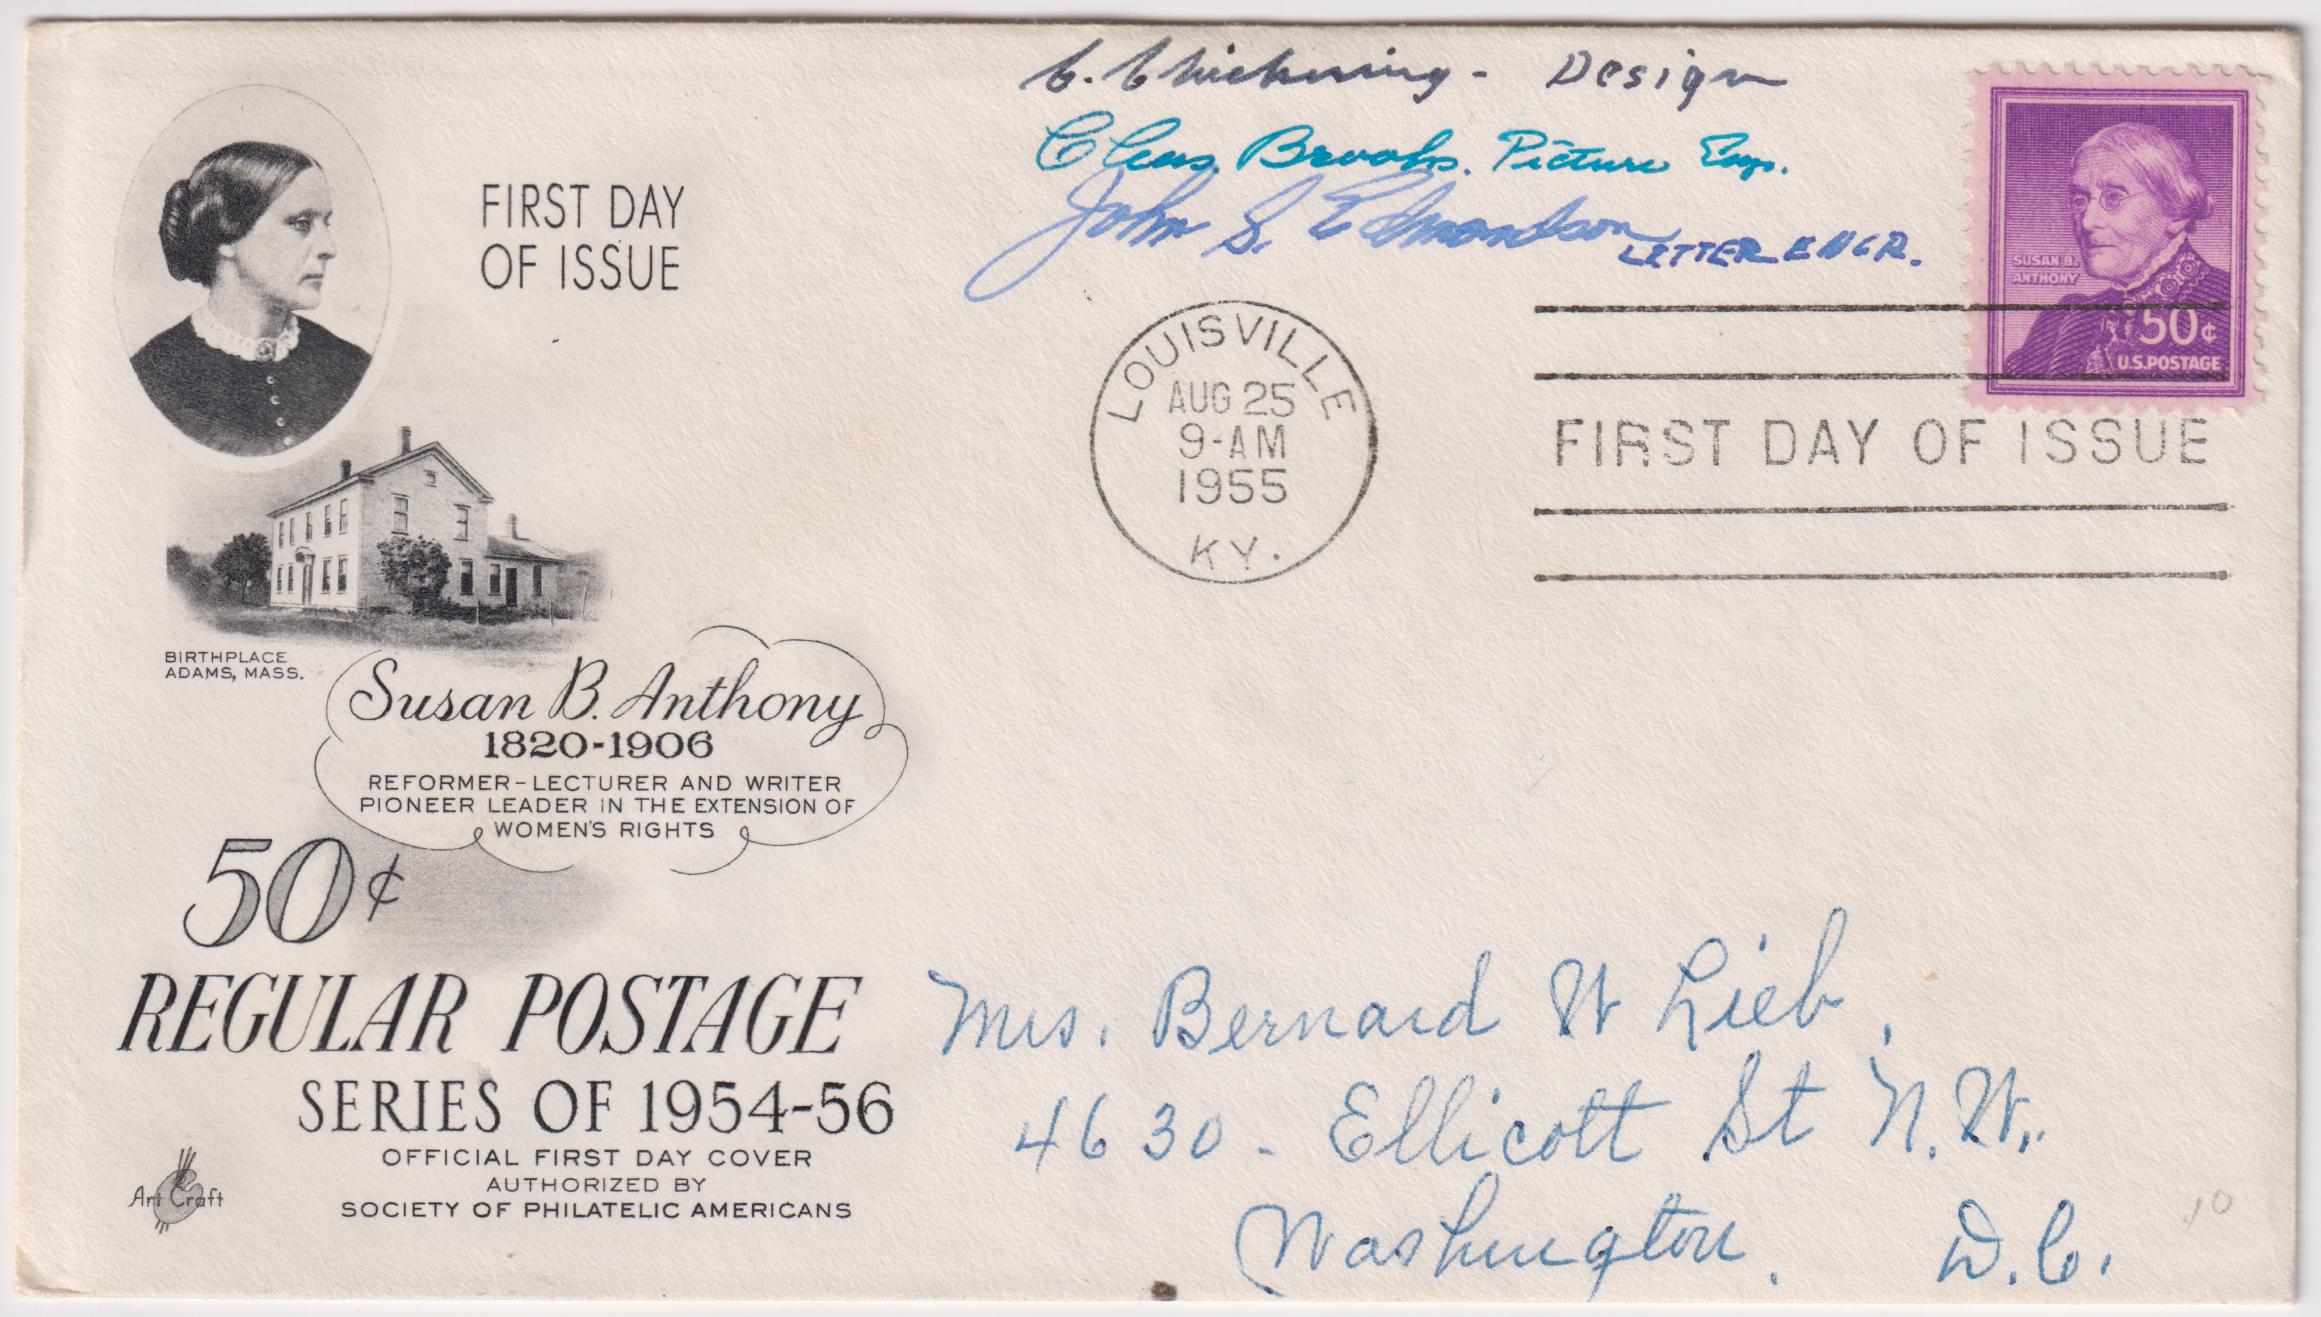 C. Chickering - Design
Chas. Brooks. Picture Engr.
John S. Edmondson LETTER ENGR.
FIRST DAY
OF ISSUE
SUSAN B.
ANTHONY
50¢
U.S. POSTAGE
LOUISVILLE
AUG 25
9-AM
1955
KY.
FIRST DAY OF ISSUE
BIRTHPLACE
ADAMS, MASS.
Susan B. Anthony
1820-1906
REFORMER-LECTURER AND WRITER
PIONEER LEADER IN THE EXTENSION OF
WOMEN'S RIGHTS
50¢
REGULAR POSTAGE
SERIES OF 1954-56
OFFICIAL FIRST DAY COVER
AUTHORIZED BY
SOCIETY OF PHILATELIC AMERICANS
Art Craft
Mrs. Bernard W Lieb,
4630 - Ellicott St N.W.,
Washington, D.C.
10